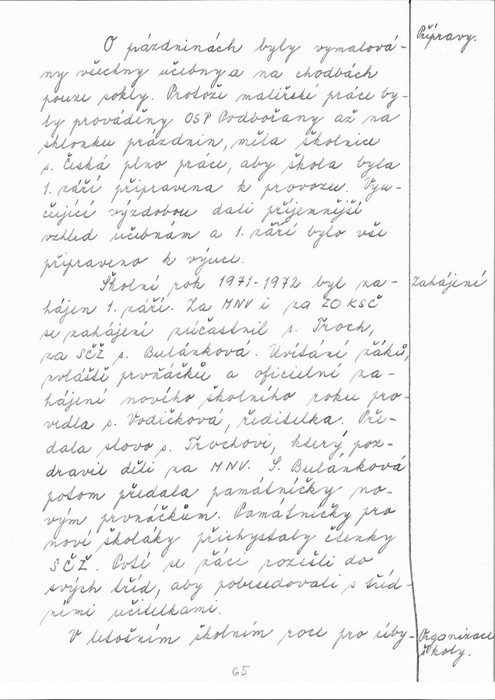 O prázdninách byly vymalová-
Přípravy.
ny všechny učebny a na chodbách
pouze sokly. Protože malířské práce by-
ly prováděny OSP Podbořany až na
sklonku prázdnin, měla školnice
s. Česká plno práce, aby škola byla
1. září připravena k provozu. Vyu-
čující výzdobou dali příjemnější
vzhled učebnám a 1. září bylo vše
připraveno k výuce.
Školní rok 1971-1972 byl za-
Zahájení
hájen 1. září. Za MNV i za ZO KSČ
se zahájení zúčastnil s. Troch,
za SČŽ s. Bulánková. Uvítání žáků,
zvláště prvňáčků a oficielní za-
hájení nového školního roku pro-
vedla s. Vodičková, ředitelka. Pře-
dala slovo s. Trochovi, který poz-
dravil děti za MNV. S. Bulánková
potom předala památníčky no-
vým prvňáčkům. Památníčky pro
nové školáky přichystaly členky
SČŽ. Poté se žáci rozešli do
svých tříd, aby pobesedovali s tříd-
ními učitelkami.
V letošním školním roce pro úby-
Organizace
školy.
65